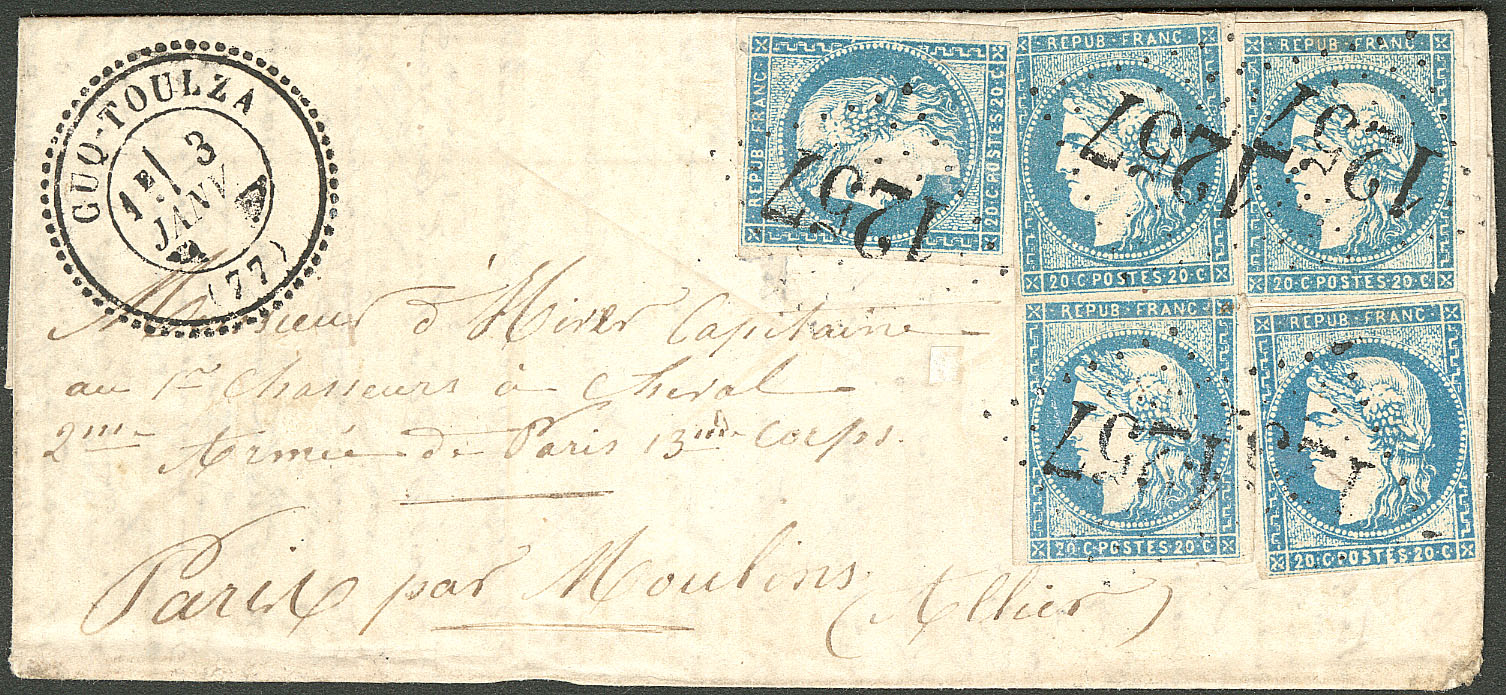 CUQ-TOULZA
1E/ 3
JANV
(77)
REPUB·FRANC
20·C·POSTES·20·C
1257
REPUB·FRANC
20·C·POSTES·20·C
1257
REPUB·FRANC
20·C·POSTES·20·C
1257
REPUB·FRANC
20·C·POSTES·20·C
1257
REPUB·FRANC
20·C·POSTES·20·C
Monsieur d'Hiver Capitaine
au 1er Chasseurs à Cheval
2me Armée de Paris 13me Corps.
Paris par Moulins
(Allier)